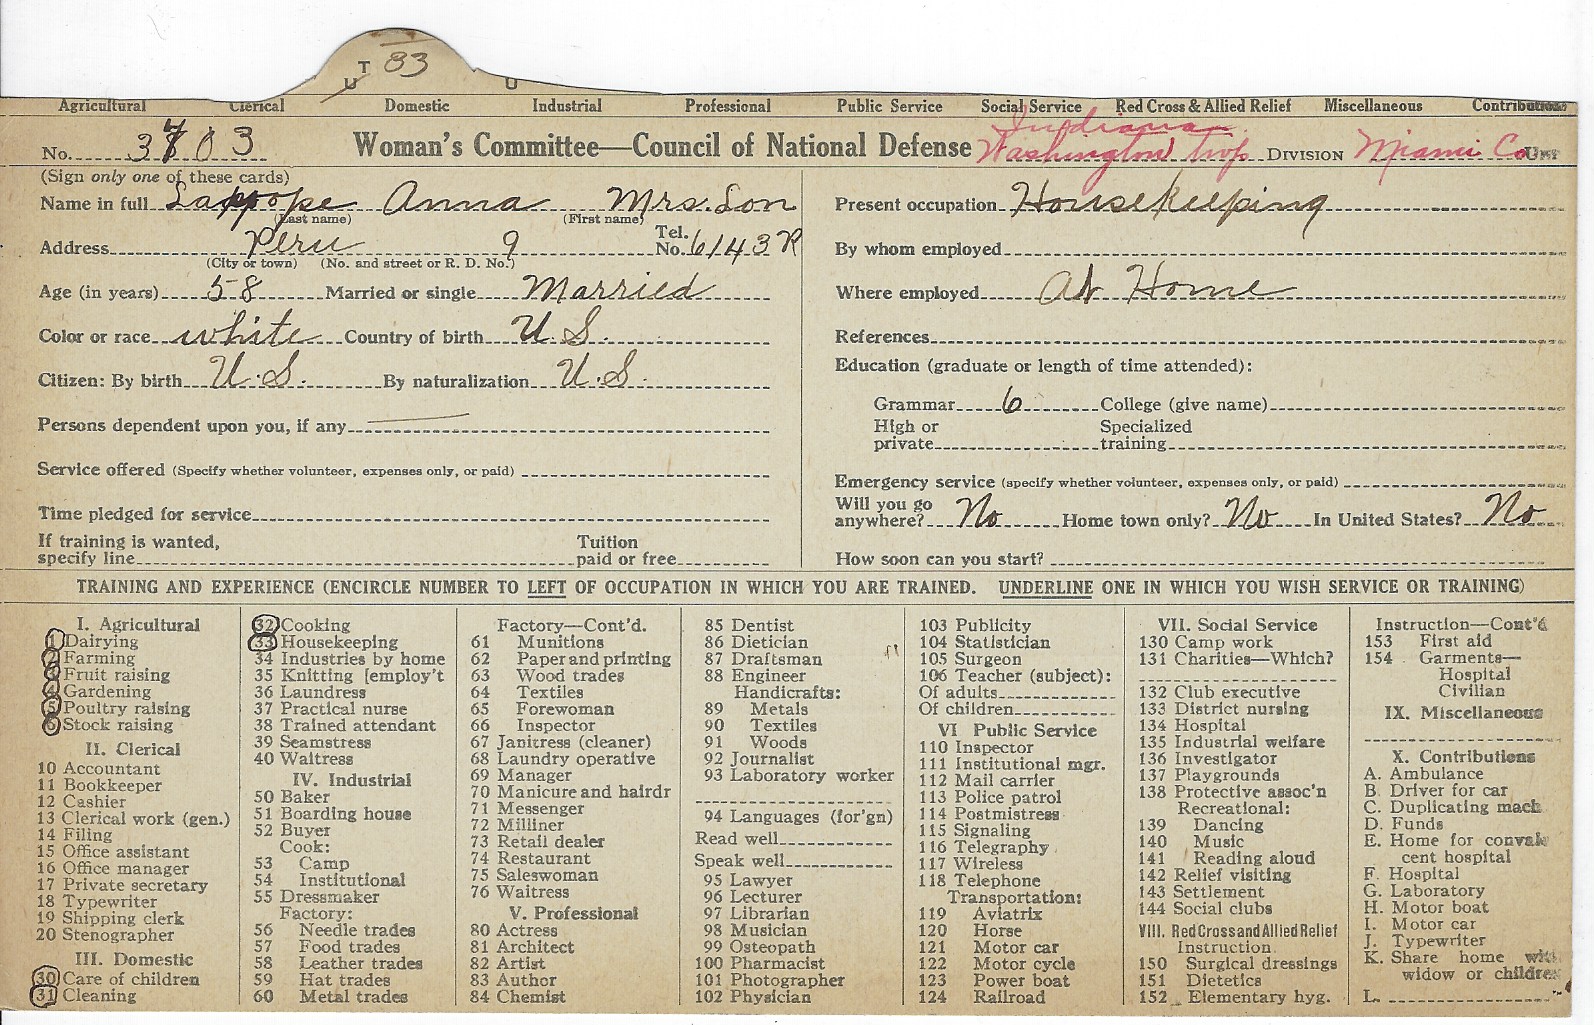 T 83
U U
Agricultural Clerical Domestic Industrial Professional Public Service Social Service Red Cross & Allied Relief Miscellaneous Contributions
Indiana
No. 3703 Woman's Committee—Council of National Defense Washington Twp DIVISION Miami Co. UNIT
(Sign only one of these cards)
Name in full Lappope Anna Mrs. Lon
(Last name) (First name)
Address Peru 9 Tel. No. 6143 R
(City or town) (No. and street or R. D. No.)
Age (in years) 58 Married or single Married
Color or race white Country of birth U.S.
Citizen: By birth U.S. By naturalization U.S.
Persons dependent upon you, if any
Service offered (Specify whether volunteer, expenses only, or paid)
Time pledged for service
If training is wanted, specify line Tuition paid or free
Present occupation Housekeeping
By whom employed
Where employed At Home
References
Education (graduate or length of time attended):
Grammar 6 College (give name)
High or private Specialized training
Emergency service (specify whether volunteer, expenses only, or paid)
Will you go anywhere? No Home town only? No In United States? No
How soon can you start?
TRAINING AND EXPERIENCE (ENCIRCLE NUMBER TO LEFT OF OCCUPATION IN WHICH YOU ARE TRAINED. UNDERLINE ONE IN WHICH YOU WISH SERVICE OR TRAINING)
I. Agricultural
1 Dairying
2 Farming
3 Fruit raising
4 Gardening
5 Poultry raising
6 Stock raising
II. Clerical
10 Accountant
11 Bookkeeper
12 Cashier
13 Clerical work (gen.)
14 Filing
15 Office assistant
16 Office manager
17 Private secretary
18 Typewriter
19 Shipping clerk
20 Stenographer
III. Domestic
30 Care of children
31 Cleaning
32 Cooking
33 Housekeeping
34 Industries by home
35 Knitting [employ't
36 Laundress
37 Practical nurse
38 Trained attendant
39 Seamstress
40 Waitress
IV. Industrial
50 Baker
51 Boarding house
52 Buyer
Cook:
53 Camp
54 Institutional
55 Dressmaker
Factory:
56 Needle trades
57 Food trades
58 Leather trades
59 Hat trades
60 Metal trades
Factory—Cont'd.
61 Munitions
62 Paper and printing
63 Wood trades
64 Textiles
65 Forewoman
66 Inspector
67 Janitress (cleaner)
68 Laundry operative
69 Manager
70 Manicure and hairdr
71 Messenger
72 Milliner
73 Retail dealer
74 Restaurant
75 Saleswoman
76 Waitress
V. Professional
80 Actress
81 Architect
82 Artist
83 Author
84 Chemist
85 Dentist
86 Dietician
87 Draftsman
88 Engineer
Handicrafts:
89 Metals
90 Textiles
91 Woods
92 Journalist
93 Laboratory worker
94 Languages (for'gn)
Read well
Speak well
95 Lawyer
96 Lecturer
97 Librarian
98 Musician
99 Osteopath
100 Pharmacist
101 Photographer
102 Physician
103 Publicity
104 Statistician
105 Surgeon
106 Teacher (subject):
Of adults
Of children
VI Public Service
110 Inspector
111 Institutional mgr.
112 Mail carrier
113 Police patrol
114 Postmistress
115 Signaling
116 Telegraphy
117 Wireless
118 Telephone
Transportation:
119 Aviatrix
120 Horse
121 Motor car
122 Motor cycle
123 Power boat
124 Railroad
VII. Social Service
130 Camp work
131 Charities—Which?
132 Club executive
133 District nursing
134 Hospital
135 Industrial welfare
136 Investigator
137 Playgrounds
138 Protective assoc'n
Recreational:
139 Dancing
140 Music
141 Reading aloud
142 Relief visiting
143 Settlement
144 Social clubs
VIII. Red Cross and Allied Relief
Instruction
150 Surgical dressings
151 Dietetics
152 Elementary hyg.
Instruction—Cont'd
153 First aid
154 Garments—
Hospital
Civilian
IX. Miscellaneous
X. Contributions
A. Ambulance
B. Driver for car
C. Duplicating mach
D. Funds
E. Home for convales
cent hospital
F. Hospital
G. Laboratory
H. Motor boat
I. Motor car
J. Typewriter
K. Share home with
widow or children
L.